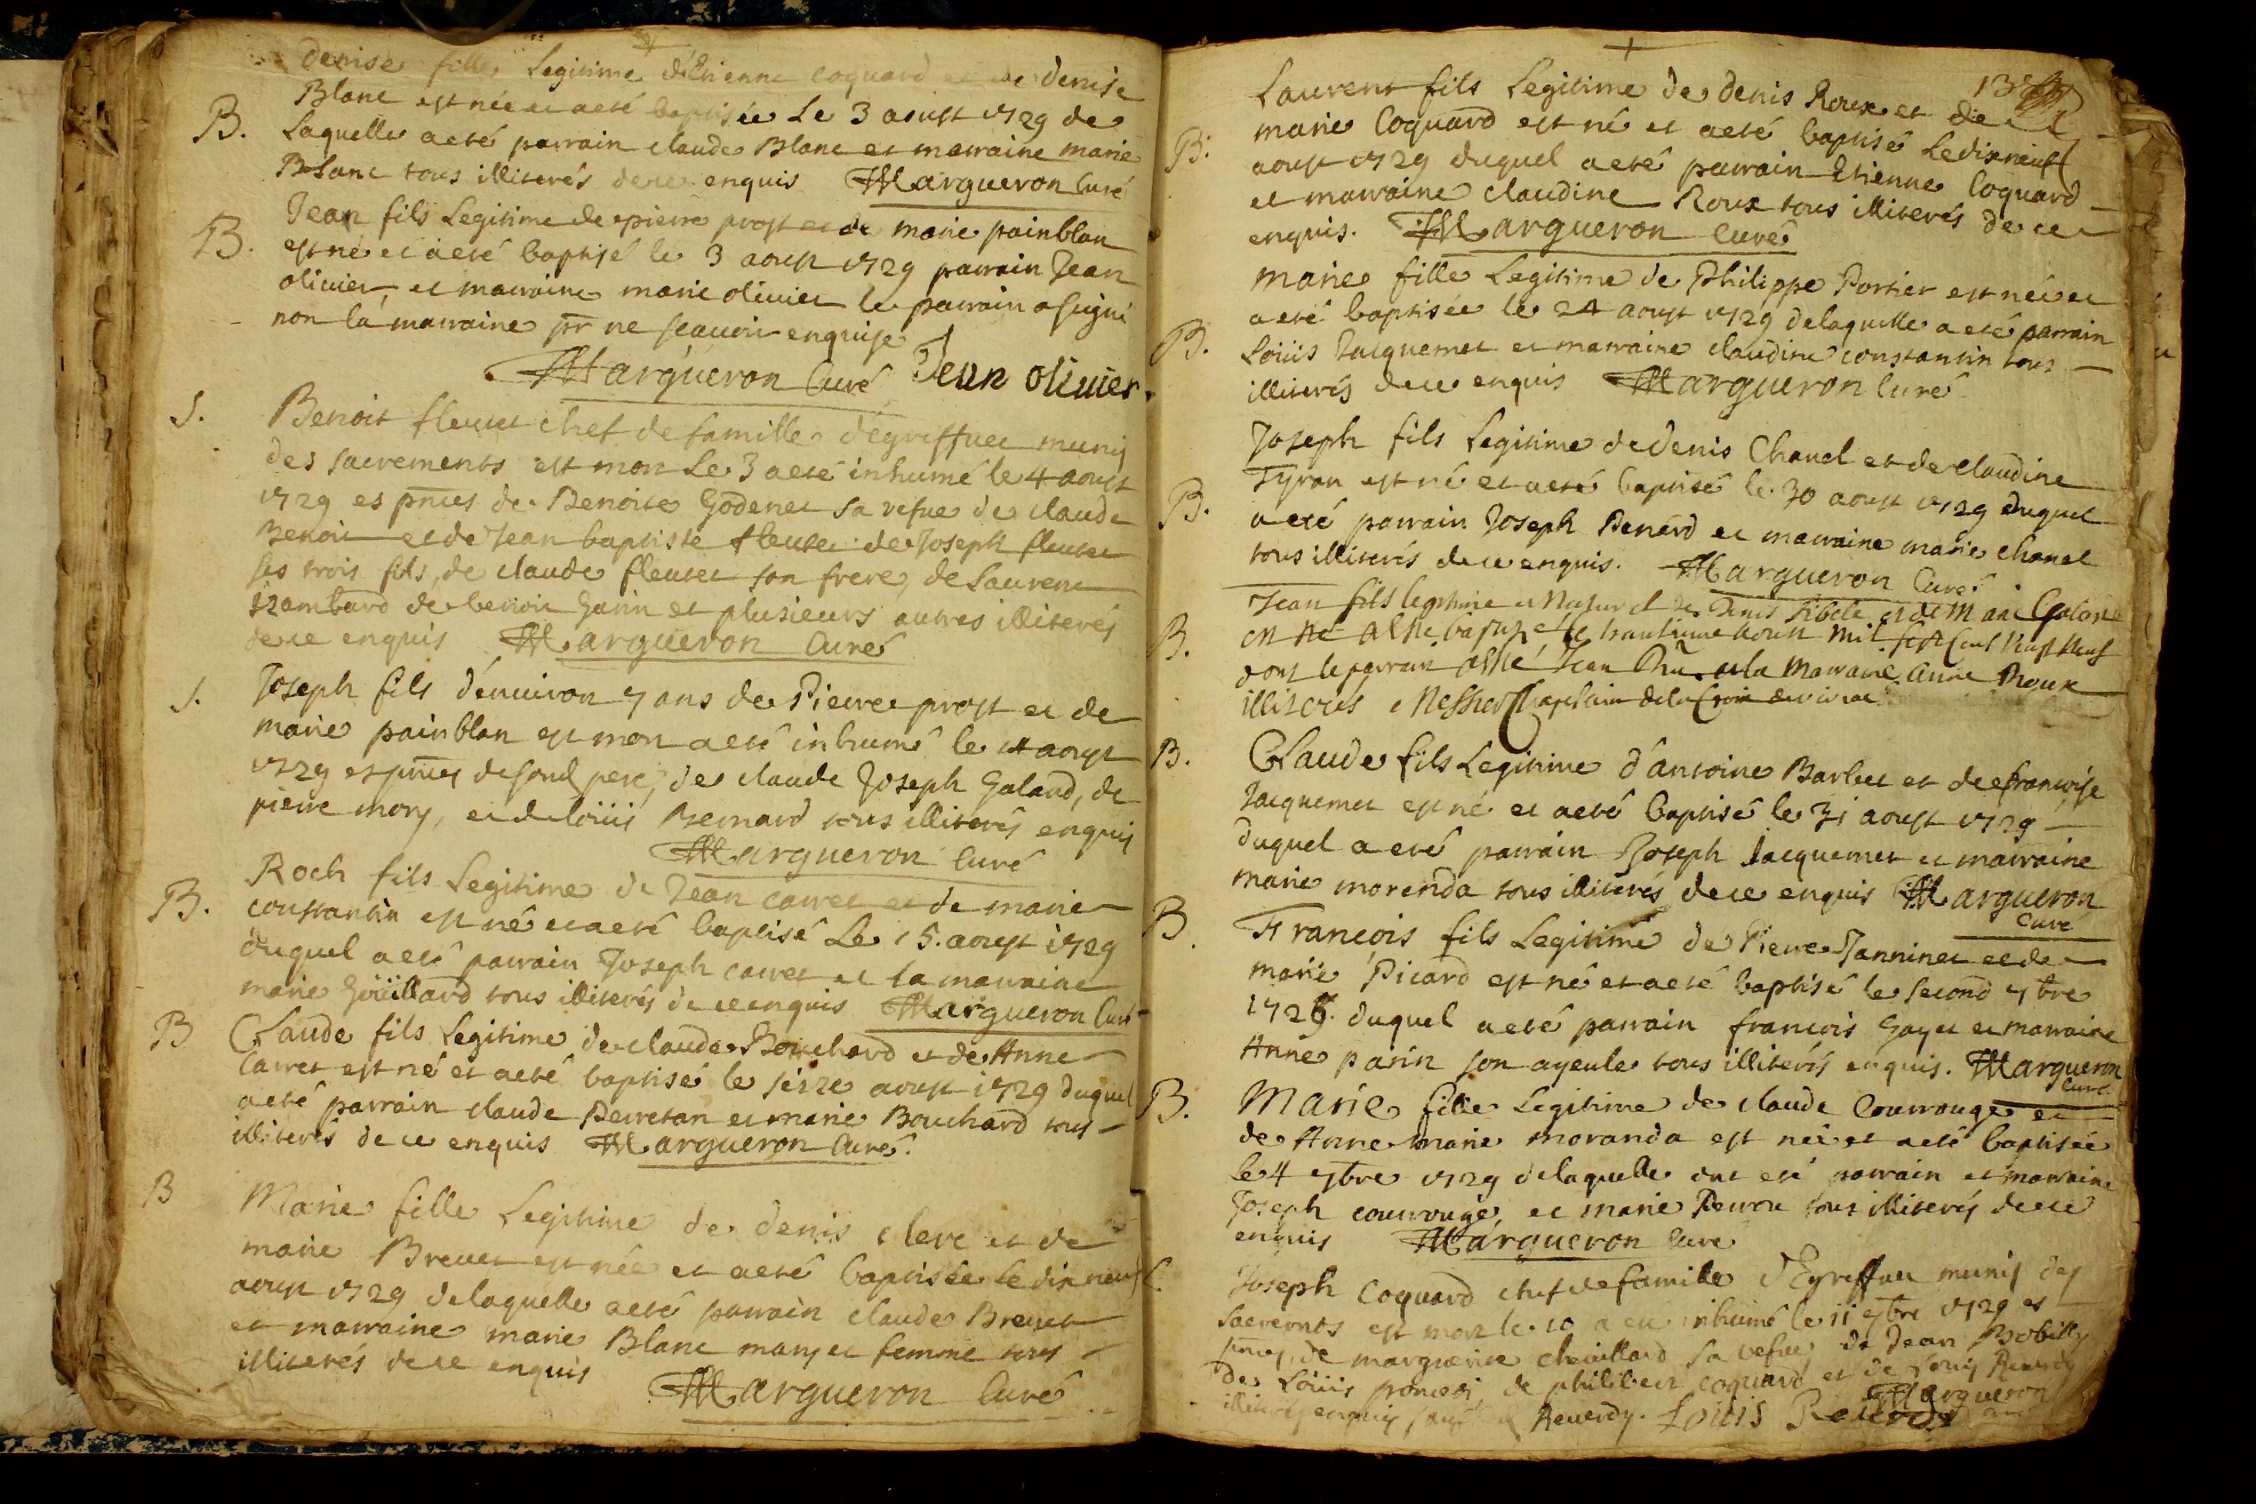 denise fille Legitime d'Etienne coquard et de denise
Blanc est née et a eté baptisée Le 3 aoust 1729 de
B. Laquelle a eté parrain claude Blanc et marraine marie
Blanc tous illiterés de ce enquis Margueron Curé
Jean fils Legitime de pierre prost et de marie painblan
B. est né et a eté baptisé le 3 aoust 1729 parrain Jean
olivier, et marraine marie olivier le parrain a signé
non la marraine pr ne scavoir enquise
Margueron Curé Jean olivier
S. Benoit fleutet chef de famille d'égreffuet muny
des sacrements est mort Le 3 a eté inhumé le 4 aoust
1729 es pnces de Benoite Godenet sa vefve de claude
Benoit et de Jean baptiste fleutet de Joseph fleutet
ses trois fils, de claude fleutet son frere, de Laurent
de benoit Garin et plusieurs autres illiterés
de ce enquis Margueron Curé
S. Joseph fils d'environ 7 ans de Pierre prost et de
marie painblan est mort a eté inhumé le 14 aoust
1729 es pnces de son pere, de claude Joseph Galand, de
pierre mory, et de loüis Bernard tous illiterés enquis
Margueron Curé
Roch fils Legitime de Jean carret et de marie
B. constantin est né et a eté baptisé Le 15. aoust 1729
duquel a eté parrain Joseph carret et la marraine
marie Goüillard tous illiterés de ce enquis Margueron Curé
B Claude fils Legitime de claude Bouchard et de Anne
Carret est né et a eté baptisé le seize aoust 1729 duquel
a eté parrain claude Perretan et marie Bouchard tous
illiterés de ce enquis Margueron Curé.
B Marie fille Legitime de denis clerc et de
marie Brevet est née et a eté baptisée le dix neuf
aoust 1729 de laquelle a eté parrain claude Brevet
et marraine marie Blanc mary et femme tous
illiterés de ce enquis
Margueron Curé
Laurent fils Legitime de denis Roux et de
B. marie Coquard est né et a eté baptisé Le dixneuf
aoust 1729 duquel a eté parrain Etienne Coquard
et marraine claudine Roux tous illiterés de ce
enquis. Margueron Curé
marie fille Legitime de Philippe Portier est née et
a eté baptisée le 24 aoust 1729 de laquelle a eté parrain
B. Loüis Jacquemet et marraine claudine constantin tous
illiterés de ce enquis Margueron Curé
Joseph fils Legitime de denis Chanel et de claudine
B. Tyran est né et a eté baptisé le 30 aoust 1729 duquel
a eté parrain Joseph Penérd et marraine marie Chanel
tous illiterés de ce enquis. Margueron Curé
Jean fils legitime et Naturel de Denis et de Marie
B. est né a esté baptizé le trantieme aoust mil sept Cent vingt Neuf
dont le parrain a esté Jean et la Marraine Anne Roux
illiterés Messier Chapelain de la Croix
B. Claude fils Legitime d'antoine Barlet et de francoise
Jacquemet est né et a eté baptisé le 31 aoust 1729
duquel a eté parrain Joseph Jacquemet et marraine
marie morenda tous illiterés de ce enquis Margueron
Curé
B François fils Legitime de Pierre Janninet et de
marie Picard est né et a eté baptisé le second 7bre
1729. duquel a eté parrain francois Gayet et marraine
Anne parin son ayeule tous illiterés enquis. Margueron
Curé
B. Marie fille Legitime de claude Courrouge et
de Anne marie moranda est née et a eté baptisée
le 4 7bre 1729 de laquelle ont eté parrain et marraine
Joseph courrouge, et marie Perron tous illiterés de ce
enquis Margueron Curé
Joseph Coquard chef de famille d'Egreffuet muny des
sacremnts est mort le 10 a eté inhumé le 11 7bre 1729 es
pnces de marguerite chevillard sa vefve, de Jean Robilly
de Loüis de philibert coquard et de Louis Reverdy
illiterés enquis Reverdy. Louis Reverdy Margueron